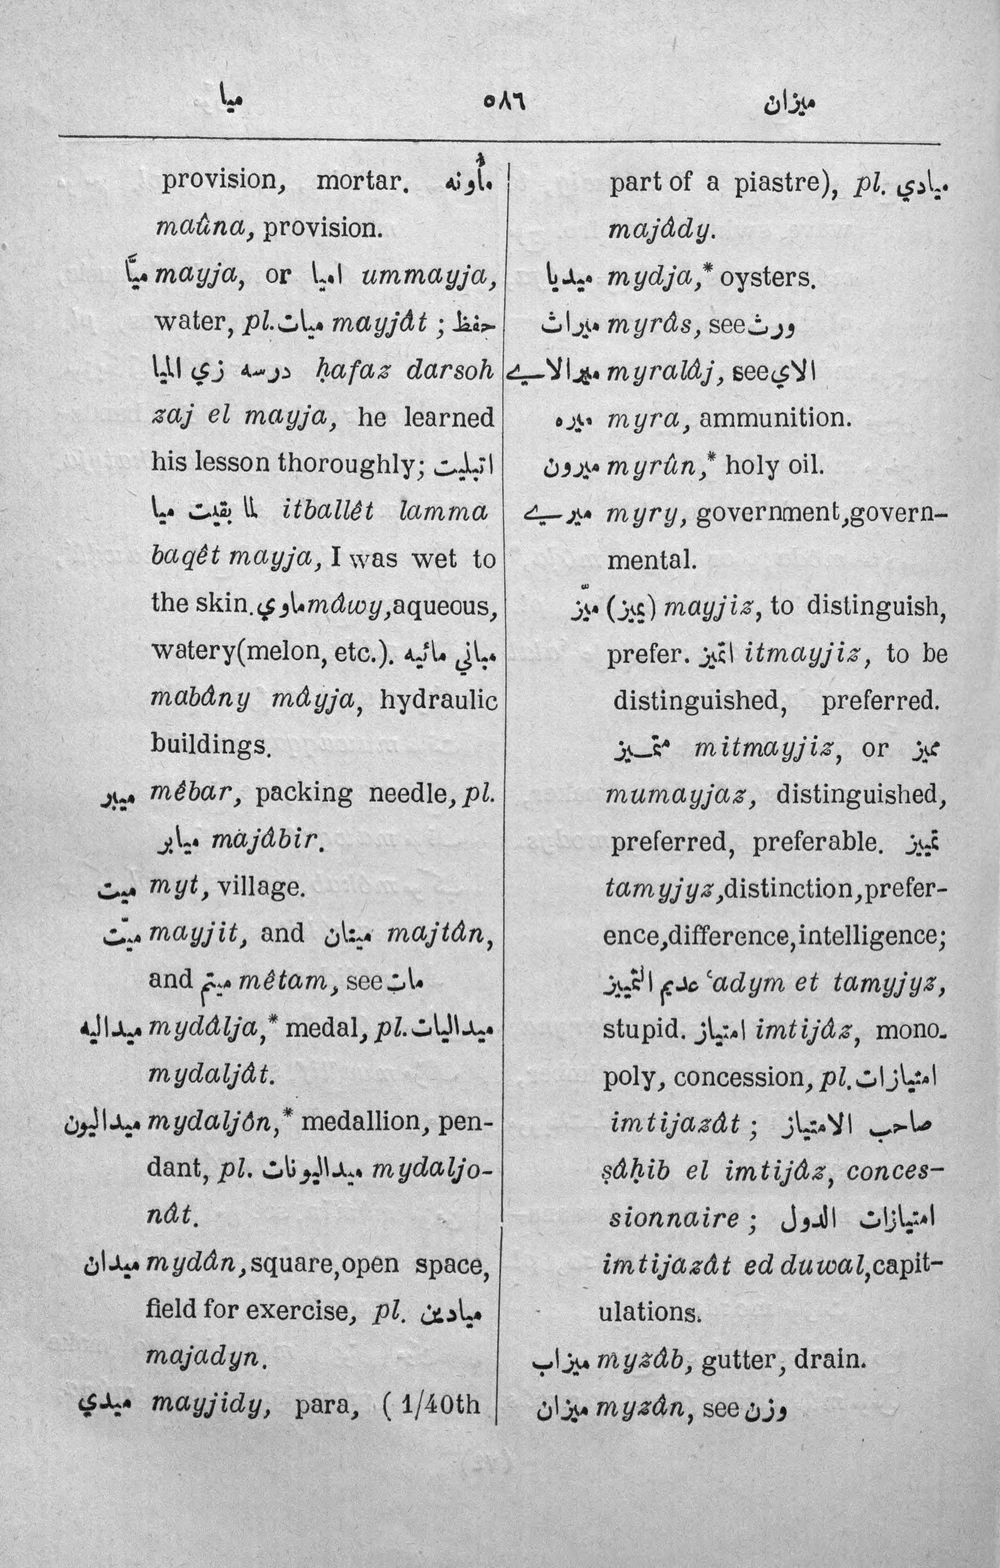 ميا ٥٨٦ ميزان
provision, mortar. مأونه
maûna, provision.
ميّا mayja, or اميا ummayja,
water, pl. ميات mayjât ; حفظ
درسه زي الميا ḥafaz darsoh
zaj el mayja, he learned
his lesson thoroughly; اتبليت
لما بقيت ميا itballêt lamma
baqêt mayja, I was wet to
the skin. ماوي mâwy, aqueous,
watery (melon, etc.). مباني مائيه
mabâny mâyja, hydraulic
buildings.
ميبر mêbar, packing needle, pl.
ميابر majâbir.
ميت myt, village.
ميّت mayjit, and ميتان majtân,
and ميتم mêtam, see مات
ميداليه myddâlja,* medal, pl. ميداليات
mydaljât.
ميداليون mydaljôn,* medallion, pen-
dant, pl. ميداليونات mydaljo-
nât.
ميدان mydân, square, open space,
field for exercise, pl. ميادين
majadyn.
ميدي mayjidy, para, ( 1/40th
part of a piastre), pl. ميادي
majâdy.
ميديا mydja,* oysters.
ميراث myrâs, see ورث
ميرالاي myralâj, see الاي
ميره myra, ammunition.
ميرون myrûn,* holy oil.
ميري myry, government, govern-
mental.
ميّز (يميز) mayjiz, to distinguish,
prefer. اتميز itmayjiz, to be
distinguished, preferred.
متميز mitmayjiz, or مميز
mumayjaz, distinguished,
preferred, preferable. تمييز
tamyjyz, distinction, prefer-
ence, difference, intelligence;
عديم التمييز ʿadym et tamyjyz,
stupid. امتياز imtijâz, mono-
poly, concession, pl. امتيازات
imtijazât ; صاحب الامتياز
ṣâḥib el imtijâz, conces-
sionnaire ; امتيازات الدول
imtijazât ed duwal, capit-
ulations.
ميزاب myzâb, gutter, drain.
ميزان myzân, see وزن